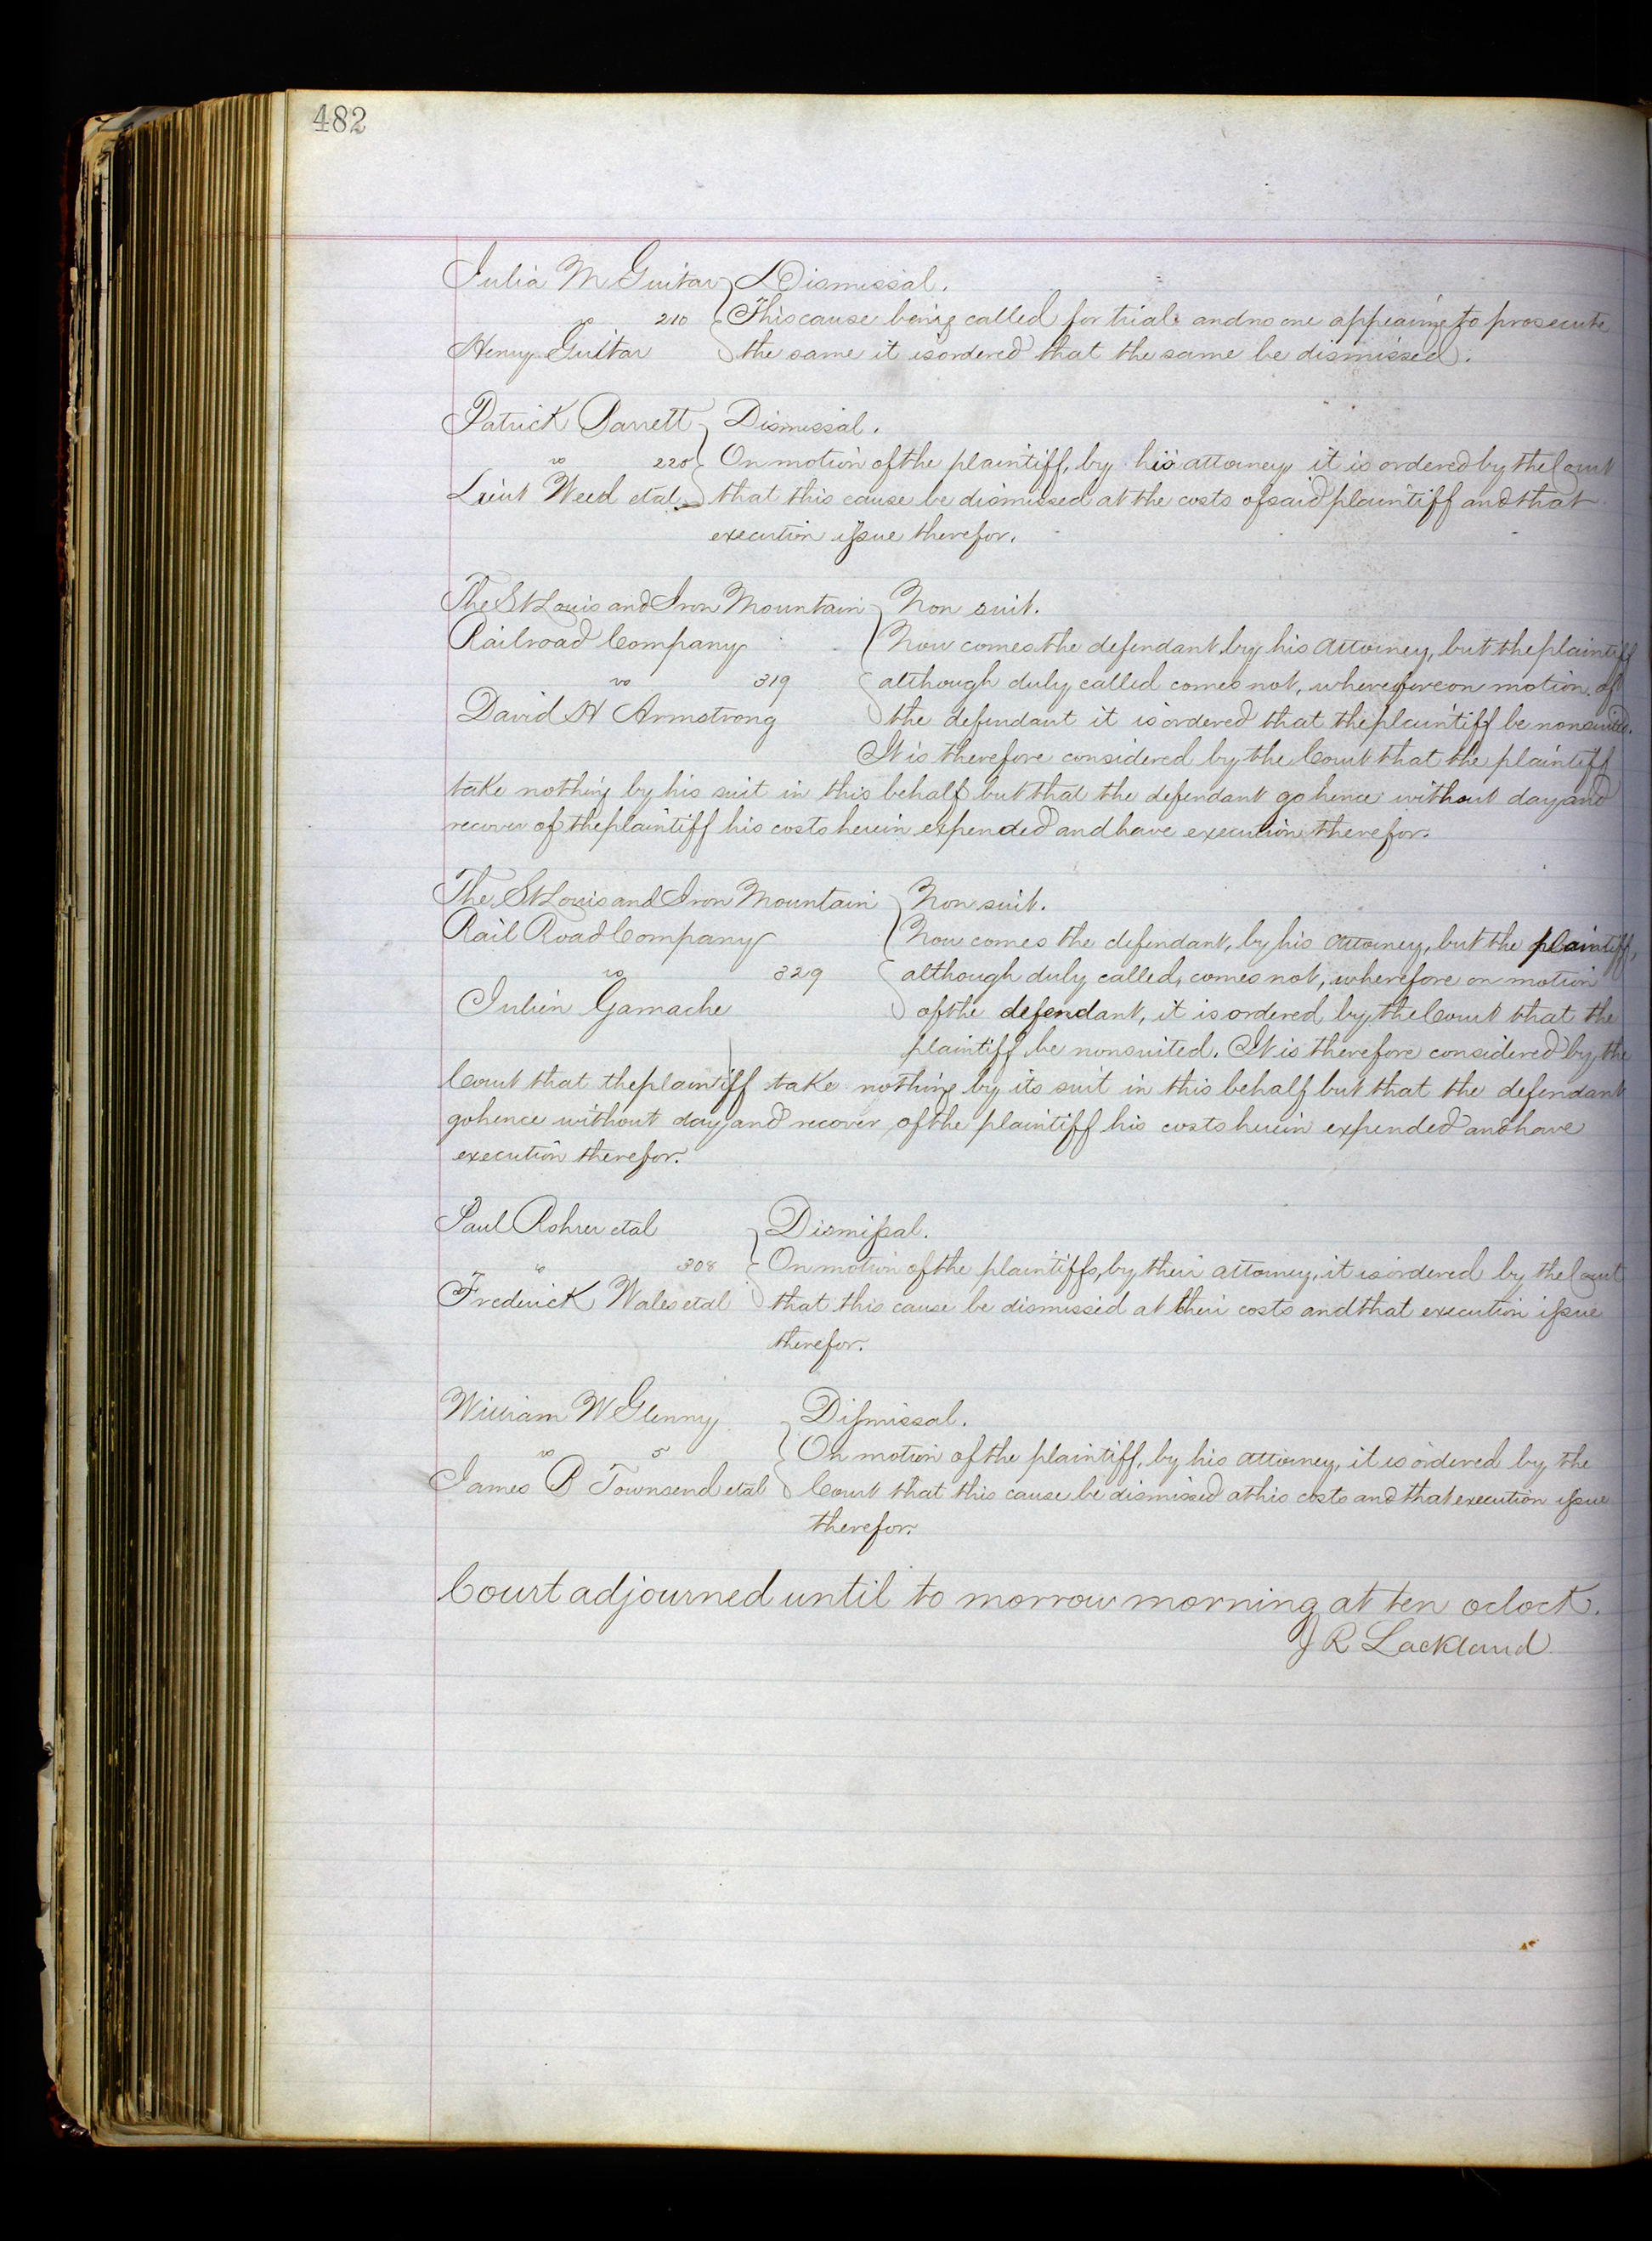 482
Julia M Guitar Dismissal.
vs 210 This cause being called for trial and no one appearing to prosecute
Henry Guitar the same it is ordered that the same be dismissed.
Patrick Barrett Dismissal.
vs 220 On motion of the plaintiff, by his attorney it is ordered by the Court
Lieut Weed et al that this cause be dismissed at the costs of said plaintiff and that
execution issue therefor.
The St Louis and Iron Mountain Non suit.
Railroad Company Now comes the defendant by his attorney, but the plaintiff
vs 319 although duly called comes not, wherefore on motion of
David H Armstrong the defendant it is ordered that the plaintiff be nonsuited.
It is therefore considered by the Court that the plaintiff
take nothing by his suit in this behalf but that the defendant go hence without day and
recover of the plaintiff his costs herein expended and have execution therefor.
The St Louis and Iron Mountain Non suit.
Rail Road Company Now comes the defendant, by his attorney, but the plaintiff,
vs 329 although duly called, comes not, wherefore on motion
Julien Gamache of the defendant, it is ordered by the Court that the
plaintiff be nonsuited. It is therefore considered by the
Court that the plaintiff take nothing by its suit in this behalf but that the defendant
go hence without day and recover of the plaintiff his costs herein expended and have
execution therefor.
Paul Rohrer et al Dismissal.
vs 308 On motion of the plaintiffs, by their attorney, it is ordered by the Court
Frederick Wales et al that this cause be dismissed at their costs and that execution issue
therefor.
William W Glenny Dismissal.
vs 5 On motion of the plaintiff, by his attorney, it is ordered by the
James B Townsend et al Court that this cause be dismissed at his costs and that execution issue
therefor.
Court adjourned until to morrow morning at ten oclock.
J R Lackland